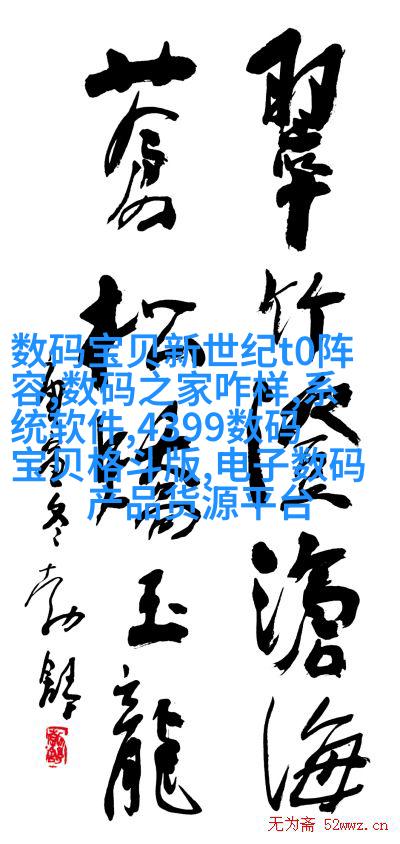 翠竹滄海
蒼松玉龍
数码宝贝新世纪t0阵
容,数码之家咋样,系
统软件,4399数码
宝贝格斗版,电子数码
产品货源平台
无为斋 52wwz.cn